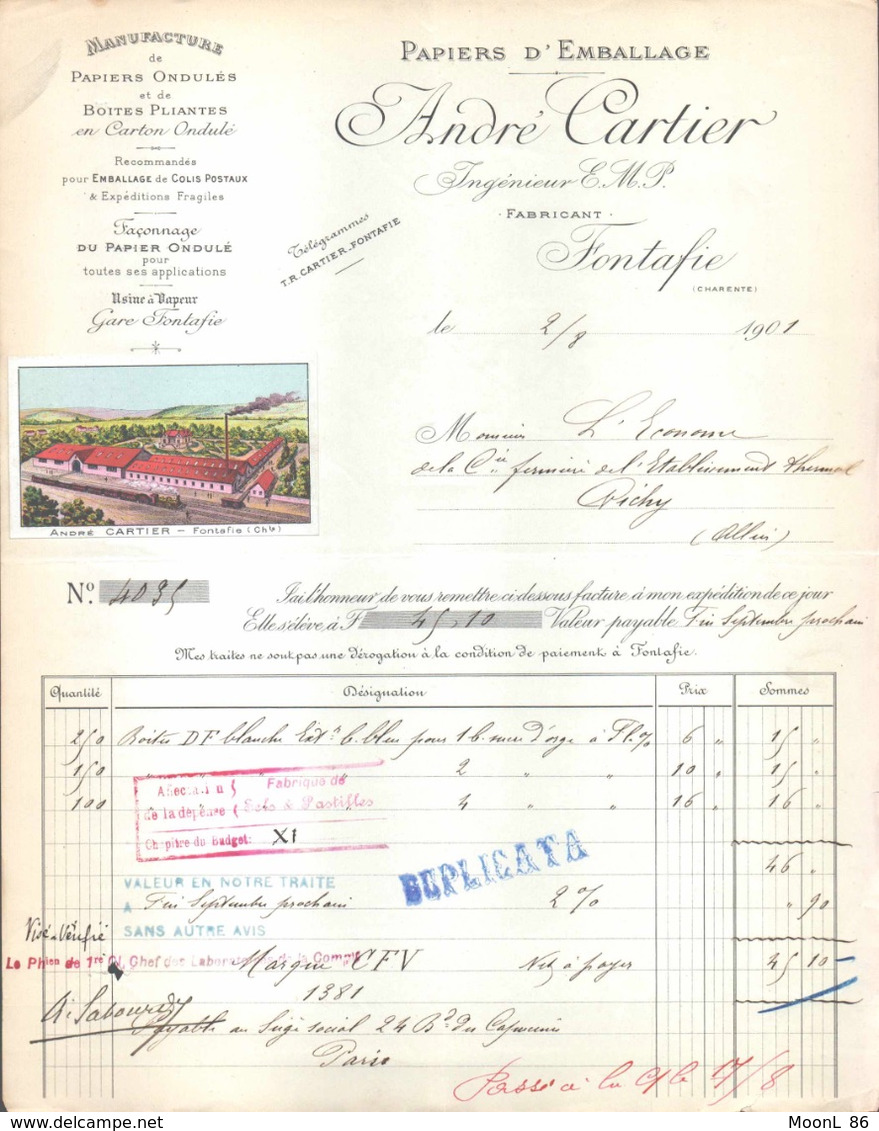 MANUFACTURE
de
PAPIERS ONDULÉS
et de
BOÎTES PLIANTES
en Carton Ondulé
Recommandés
pour EMBALLAGE de COLIS POSTAUX
& Expéditions Fragiles
Façonnage
DU PAPIER ONDULÉ
pour
toutes ses applications
Usine à Vapeur
Gare Fontafie
PAPIERS D'EMBALLAGE
André Cartier
Ingénieur E.M.P.
· FABRICANT ·
Fontafie
(CHARENTE)
Télégrammes
T.R. CARTIER-FONTAFIE
le 2/8 1901
ANDRÉ CARTIER – Fontafie (Chte)
Monsieur L'Econome
de la Cie fermière de l'Etablissement thermal
Vichy
(Allier)
No. 4035
J'ai l'honneur de vous remettre ci-dessous facture à mon expédition de ce jour
Elle s'élève à F 45,10 Valeur payable Fin Septembre prochain
Mes traites ne sont pas une dérogation à la condition de paiement à Fontafie.
Quantité Désignation Prix Sommes
250 Boites DF blanche Extr b. bleu pour 1 b. sucre d'orge à Fl. % 6 " 15 "
150 " " " 2 " " 10 " 15 "
100 4 " " 16 " 16 "
Affectation Fabrique de
de la dépense Sels & Pastilles
Chapitre du budget: XI
46 "
DUPLICATA
VALEUR EN NOTRE TRAITE
A Fin Septembre prochain 2 % " 90
SANS AUTRE AVIS
Visé & Vérifié
Le Phien de 1re Cl, Chef des Laboratoires de la Compie
Marque CFV Net à payer 45 10
1381
A. Sabourdy
Payable au Siège social 24 Bd des Capucines
Paris
Passé à la 7/8
MoonL 86